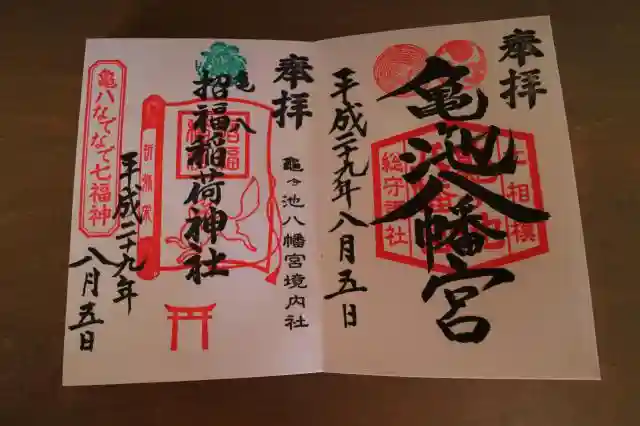 奉拝
亀池八幡宮
上相模
総守護社
平成二十九年八月五日
奉拝
亀ヶ池八幡宮境内社
亀八
招福稲荷神社
招福
亀八なでなで七福神
平成二十九年
八月五日